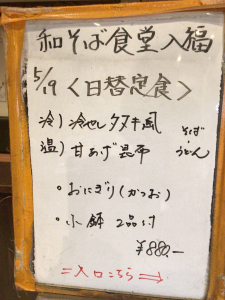 和そば食堂入福
5/19 <日替定食>
冷) 冷やしタヌキ風
温) 甘あげ昆布
そば・うどん
・おにぎり(かつお)
・小鉢 2品付
¥880,-
⇒入口こちら⇒